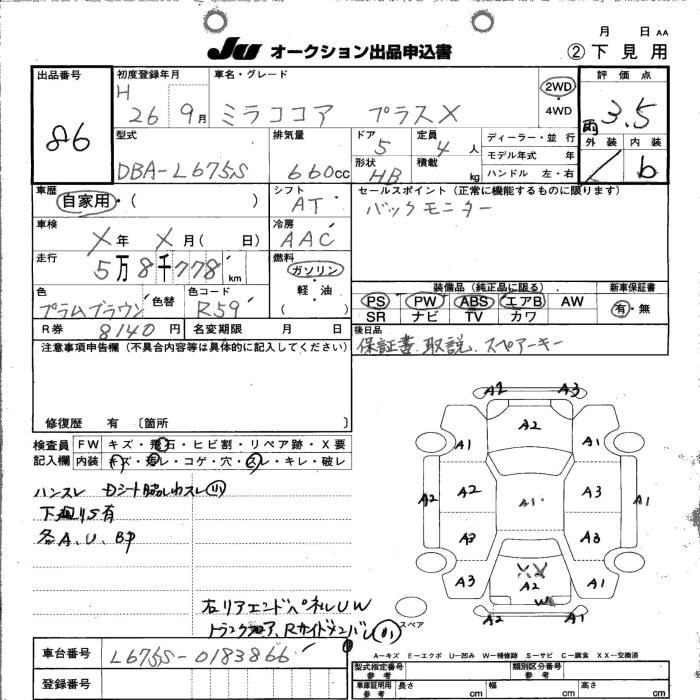 月 日 AA
JU オークション出品申込書 ②下見用
出品番号 初度登録年月 車名・グレード 評価点
86 H 26 9月 ミラココア プラスX 2WD ・ 4WD 雨 3.5
型式 排気量 ドア 定員 ディーラー・並行 外装 内装
DBA-L675S 660cc 5 4人 モデル年式 年 b
形状 積載 ハンドル 左・右
HB kg
車歴 シフト セールスポイント(正常に機能するものに限ります)
自家用・( ) AT バックモニター
車検 冷房
X年 X月( 日) AAC
走行 燃料
5万8千778km ガソリン・軽油・( )
色 色替 色コード 装備品(純正品に限る) 新車保証書
プラムブラウン R59 PS PW ABS エアB AW 有・無
SR ナビ TV カワ
R券 8140円 名変期限 月 日 後日品
注意事項申告欄(不具合内容等は具体的に記入してください) 保証書、取説、スペアーキー
修復歴 有 〔箇所 〕
検査員 FW キズ・飛石・ヒビ割・リペア跡・X要
記入欄 内装 キズ・汚レ・コゲ・穴・スレ・キレ・破レ
ハンスレ Dシート脇しわスレ
下廻りS有
各A、U、BP
右リアエンドパネルUW
トランクフロア、Rサイドメンバー
A2 A3
A2
A1 A1
A2 A2 A1 A3 A1
A3 A3
XX
A3 A2 A1
W
A2 A2
スペア
A=キズ E=エクボ U=凹み W=補修跡 S=サビ C=腐食 XX=交換済
車台番号 L675S-0183866
型式指定番号 参考 類別区分番号 参考
登録番号 車庫証明用 参考 長さ cm 幅 cm 高さ cm